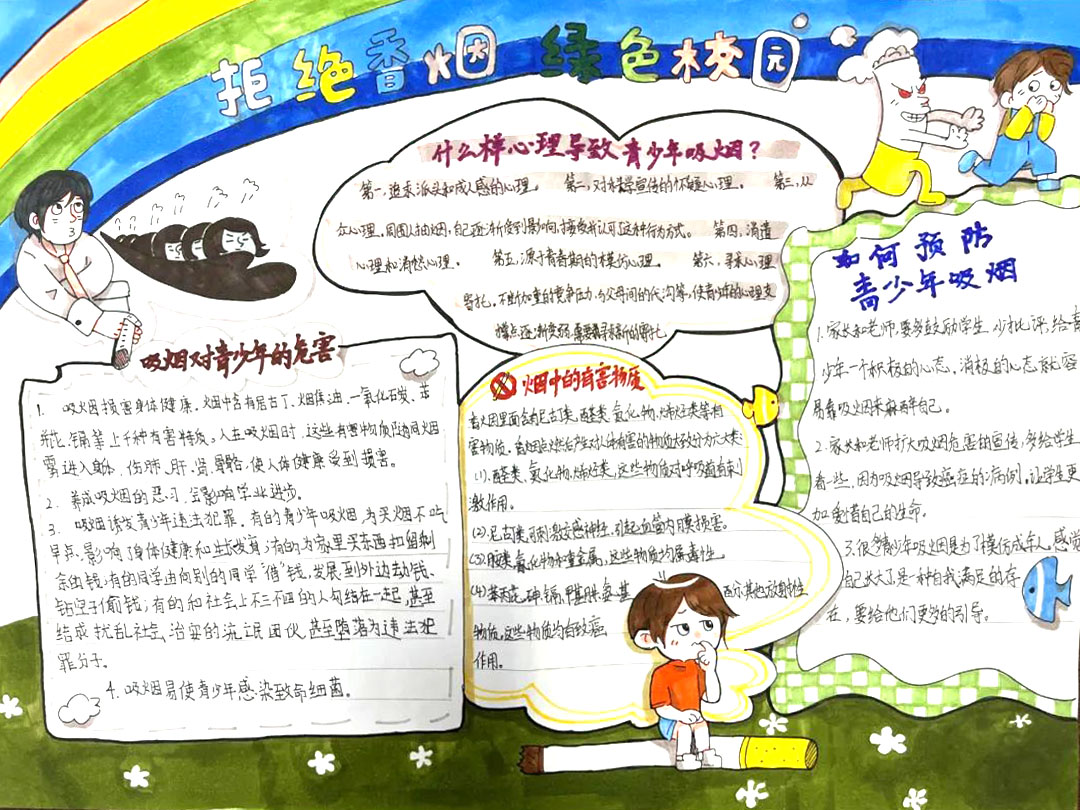 拒绝香烟 绿色校园
什么样心理导致青少年吸烟？
第一，追求派头和成人感的心理。 第二，对科学宣传的怀疑心理。 第三，从
众心理，周围人抽烟，自己逐渐受到影响，接受并认可这种行为方式。 第四，消遣
心理和消愁心理。 第五，源于青春期的模仿心理。 第六，寻求心理
寄托，不断加重的竞争压力，与父母间的代沟等，使青少年的心理支
撑点逐渐变弱，需要寻求新的寄托
吸烟对青少年的危害
1. 吸烟损害身体健康，烟中含有尼古丁、烟焦油、一氧化石炭、苯
并芘、镉等上千种有害物质。人在吸烟时，这些有害物质随同烟
雾进入身体，伤肺、肝、肾、骨骼，使人体健康受到损害。
2. 养成吸烟的恶习，会影响学业进步。
3. 吸烟诱发青少年违法犯罪。有的青少年吸烟，为买烟不吃
早点，影响了身体健康和生长发育；有的为家里买东西扣留剩
余的钱；有的同学由向别的同学“借”钱，发展到外边去劫钱、
钻空子偷钱；有的和社会上不三不四的人勾结在一起，甚至
结成扰乱社会治安的流氓团伙，甚至堕落为违法犯
罪分子。
4. 吸烟易使青少年感染致命细菌。
烟中的有害物质
香烟里面含有尼古类、醛类、氮化物、烯烃类等有
害物质。香烟点燃后产生对人体有害的物质大致分为六大类
(1)、醛类、氮化物、烯烃类，这些物质对呼吸道有刺
激作用。
(2)、尼古类，可刺激交感神经，引起血管内膜损害。
(3)、胺类、氰化物和重金属，这些物质均属毒性
(4)、苯丙芘、砷、镉、甲基肼、氨基 、其他放射性
物质，这些物质均有致癌
作用。
如何预防
青少年吸烟
1.家长和老师要多鼓励学生，少批评，给青
少年一个积极的心态，消极的心态就容
易靠吸烟来麻醉自己。
2.家长和老师扩大吸烟危害的宣传，多给学生
看一些，因为吸烟导致癌症的病例，让学生更
加爱惜自己的生命。
3.很多青少年吸烟是为了模仿成年人，感觉
自己长大了是一种自我满足的存
在，要给他们更多的引导。